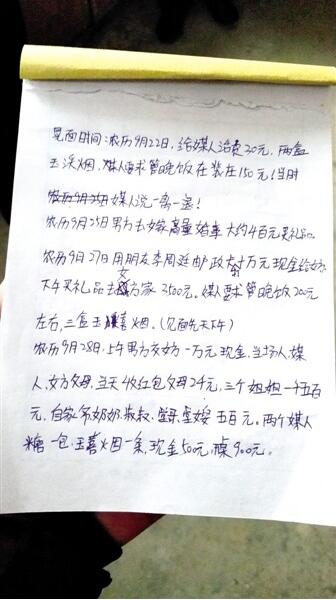 见面时间:农历9月22日,给媒人话费30元,两盒
玉溪烟,媒人要求管晚饭在装在150元(当时
媒人说一离一退!
农历9月25日男方去嫁商量婚事大约4百元买礼品。
农历9月27日用朋友李周延邮政存折万元现金给女方
下午买礼品去女方家3500元,媒人要求管晚饭200元
左右,三盒玉喜烟。(见面先天下午)
农历9月28日,上午男方交女方一万元现金,当场人,媒
人,女方父母,当天收红包父母24元,三个姐姐一千五百
元,自家爷奶奶叔叔, 五百元。两个媒人
糖一包,玉喜烟一条,现金50元,桌900元。